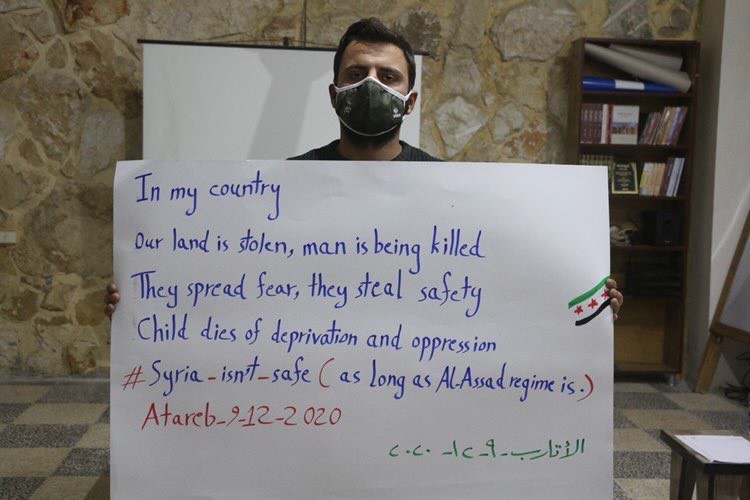 In my country
Our land is stolen, man is being killed
They spread fear, they steal safety
Child dies of deprivation and oppression
# Syria_isn't_safe ( as long as Al-Assad regime is.)
Atareb_9_12_2020
الأتارب-٩-١٢-٢٠٢٠